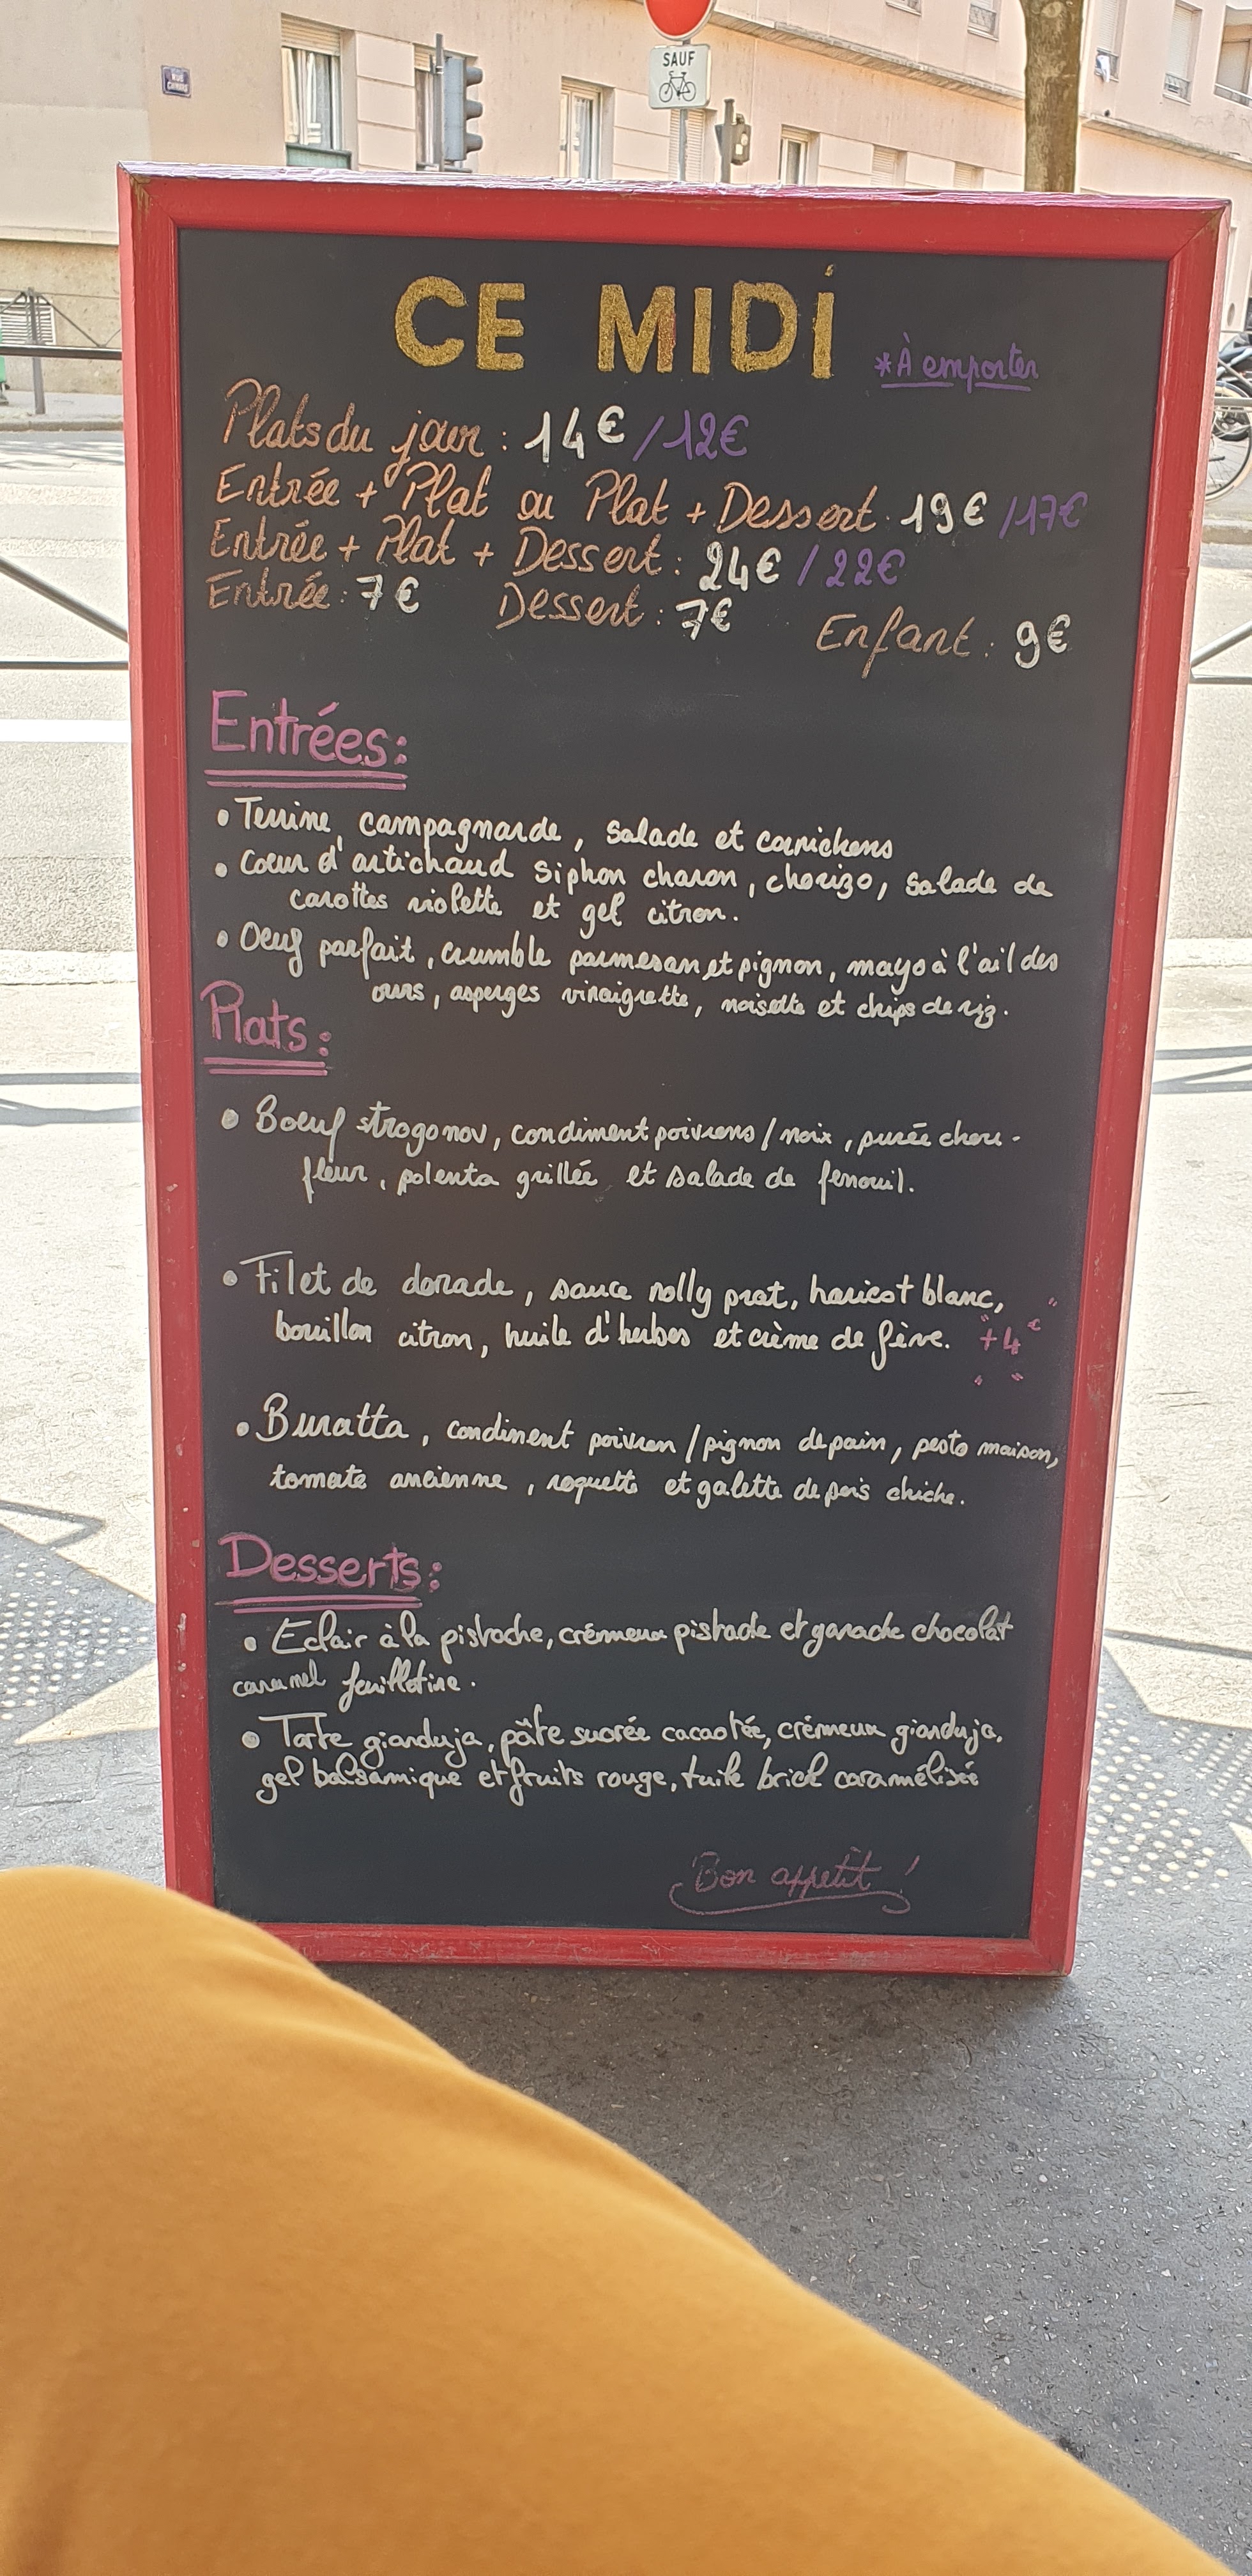 RUE
SAUF
CE MIDI
*À emporter
Plats du jour : 14€ /12€
Entrée + Plat ou Plat + Dessert 19€ /17€
Entrée + Plat + Dessert : 24€ /22€
Entrée : 7€ Dessert : 7€ Enfant : 9€
Entrées :
• Terrine campagnarde, salade et cornichons
• Coeur d'artichaud siphon charon, chorizo, salade de
carottes violette et gel citron.
• Oeuf parfait, crumble parmesan et pignon, mayo à l'ail des
ours, asperges vinaigrette, noisette et chips de riz.
Plats :
• Boeuf strogonov, condiment poivrons/noix, purée chou-
fleur, polenta grillée et salade de fenouil.
• Filet de dorade, sauce nolly prat, haricot blanc,
bouillon citron, huile d'herbes et crème de fève. "+4€"
• Buratta, condiment poivron/pignon de pain, pesto maison,
tomate ancienne, roquette et galette de pois chiche.
Desserts :
• Eclair à la pistache, crémeux pistache et ganache chocolat
caramel feuilletine.
• Tarte gianduja, pâte sucrée cacaotée, crémeux gianduja,
gel balsamique et fruits rouge, tuile brick caramélisée
Bon appétit !